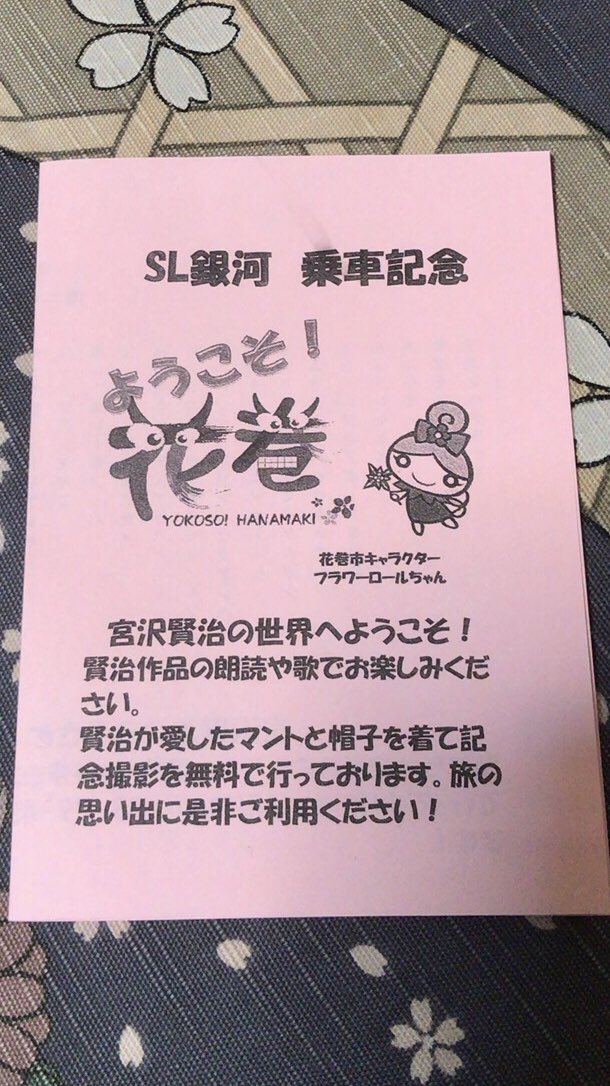 SL銀河　乗車記念
ようこそ！
花巻
YOKOSO! HANAMAKI
花巻市キャラクター
フラワーロールちゃん
宮沢賢治の世界へようこそ！
賢治作品の朗読や歌でお楽しみくだ
さい。
賢治が愛したマントと帽子を着て記
念撮影を無料で行っております。旅の
思い出に是非ご利用ください！